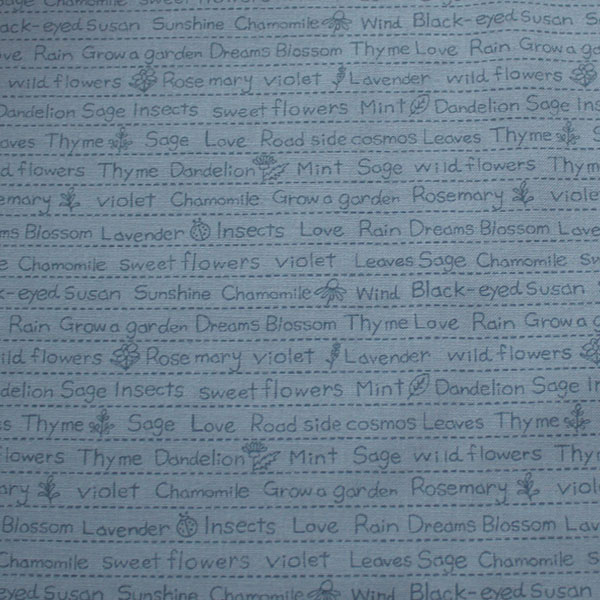 Sage Chamomile sweet flowers violet Leaves Sage Chamomile
Black-eyed Susan Sunshine Chamomile Wind Black-eyed Susan
Love Rain Grow a garden Dreams Blossom Thyme Love Rain Grow a
wild flowers Rosemary violet Lavender wild flowers
Dandelion Sage Insects sweet flowers Mint Dandelion Sage Ins
Leaves Thyme Sage Love Road side cosmos Leaves Thyme S
d flowers Thyme Dandelion Mint Sage wild flowers Thym
emary violet Chamomile Grow a garden Rosemary viole
ms Blossom Lavender Insects Love Rain Dreams Blossom Lave
e Chamomile sweet flowers violet Leaves Sage Chamomile sw
k-eyed Susan Sunshine Chamomile Wind Black-eyed Susan
Rain Grow a garden Dreams Blossom Thyme Love Rain Grow a g
ild flowers Rosemary violet Lavender wild flowers
delion Sage Insects sweet flowers Mint Dandelion Sage In
s Thyme Sage Love Road side cosmos Leaves Thyme
lowers Thyme Dandelion Mint Sage wild flowers Thy
ary violet Chamomile Grow a garden Rosemary viol
Blossom Lavender Insects Love Rain Dreams Blossom Lav
Chamomile sweet flowers violet Leaves Sage Chamomile s
eyed Susan Sunshine Chamomile Wind Black-eyed Susan